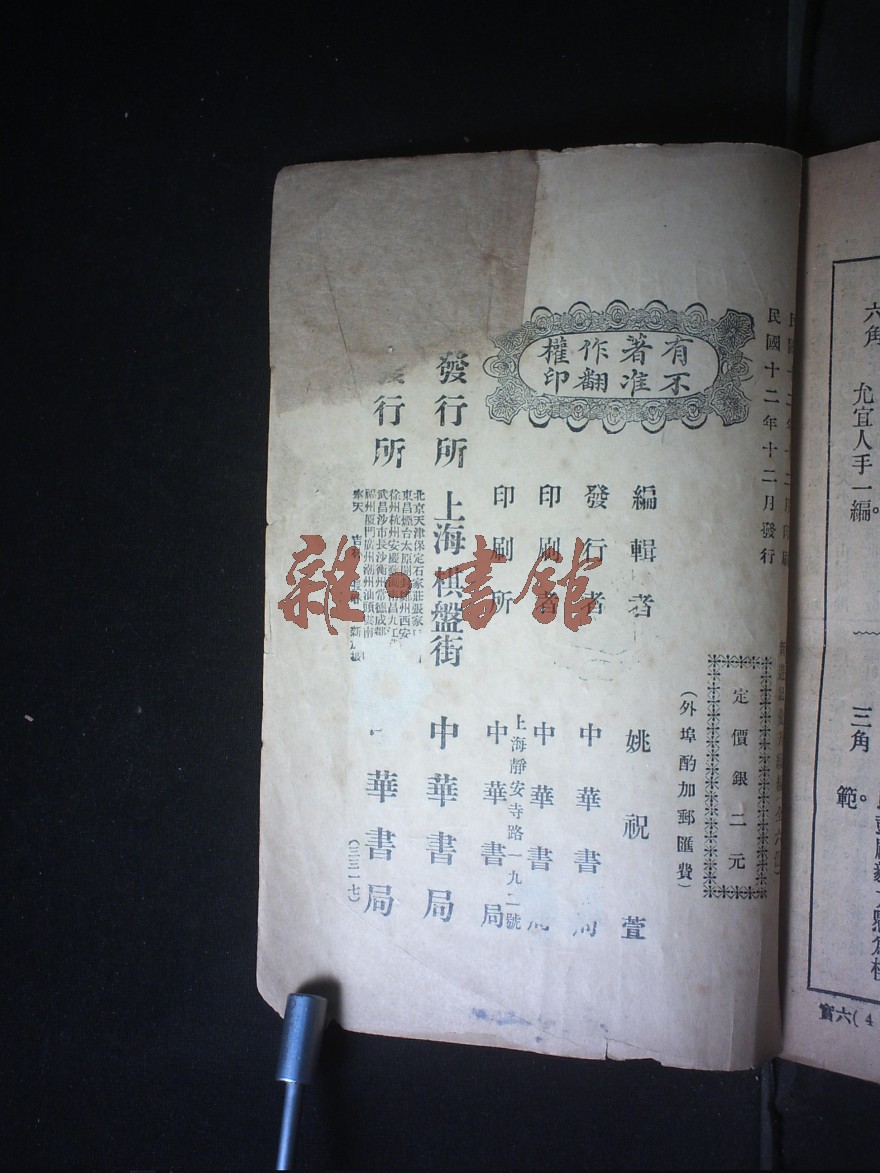 民國十二年十二月印刷
民國十二年十二月發行
定價銀二元
(外埠酌加郵匯費)
有著作權
不准翻印
編輯者 姚祝萱
發行者 中華書局
印刷者 中華書局
上海靜安寺路一九二號
印刷所 中華書局
發行所 上海棋盤街 中華書局
發行所
北京天津保定石家莊張家口
東昌煙台太原開封鄭州西安
徐州杭州安慶蕪湖南昌九江
武昌沙市長沙衡州常德成都
福州廈門廣州潮州汕頭雲南
奉天 吉林
華書局
(三三一七)
雜·書館
六角
允宜人手一編。
三角
範。
實六(4